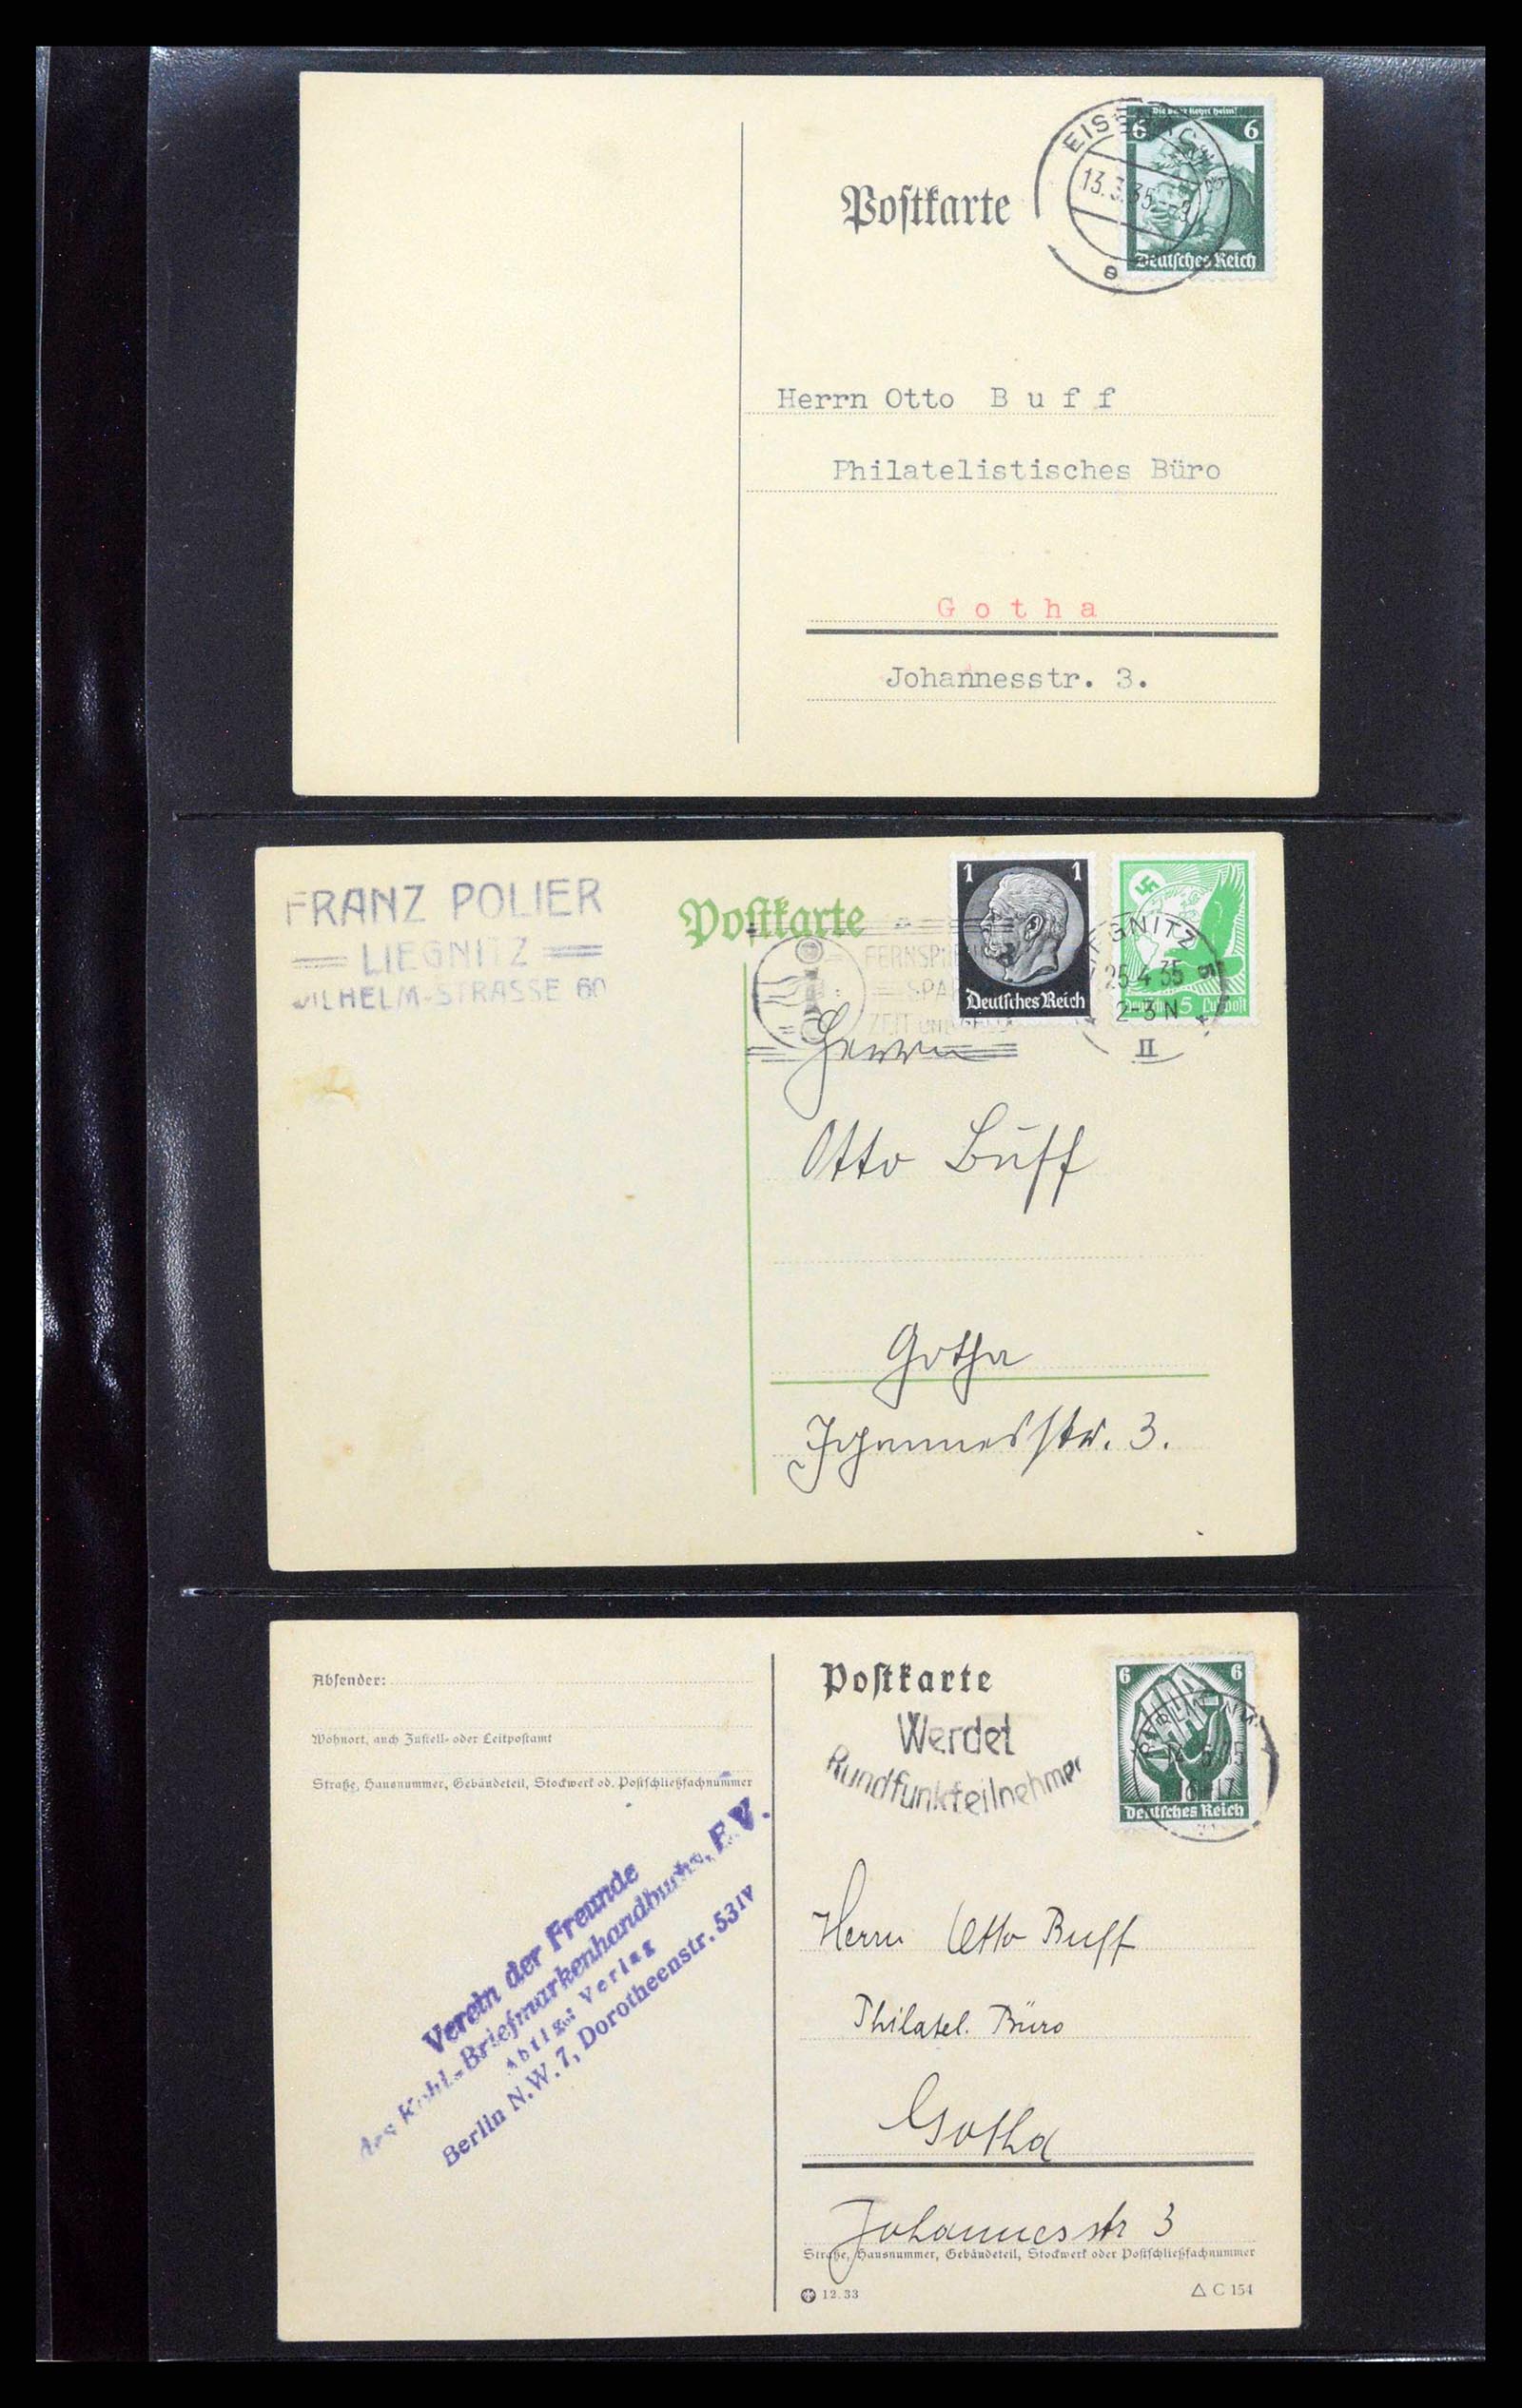 Die Saar kehrt heim!
6 6
13.3.35
Deutsches Reich
e
Postkarte
Herrn Otto B u f f
Philatelistisches Büro
G o t h a
Johannesstr. 3.
FRANZ POLIER
LIEGNITZ
WILHELM-STRASSE 60
Postkarte
1 1
Deutsches Reich
5 Luftpost
LIEGNITZ 5
25.4.35
2-3 N
II
ZEIT UND GELD
Herrn
Otto Buff
Gotha
Johannesstr. 3.
Absender:
Wohnort, auch Zustell- oder Leitpostamt
Straße, Hausnummer, Gebäudeteil, Stockwerk od. Postschließfachnummer
Verein der Freunde
des Kohl-Briefmarkenhandbuchs, E.V.
Abtlg: Verlag
Berlin N.W. 7, Dorotheenstr. 53 IV
Postkarte
Werdet
Rundfunkteilnehmer
6 6
BERLIN NW
Deutsches Reich
Herrn Otto Buff
Philatel. Büro
Gotha
Johannesstr 3
Straße, Hausnummer, Gebäudeteil, Stockwerk oder Postschließfachnummer
12.33
C 154